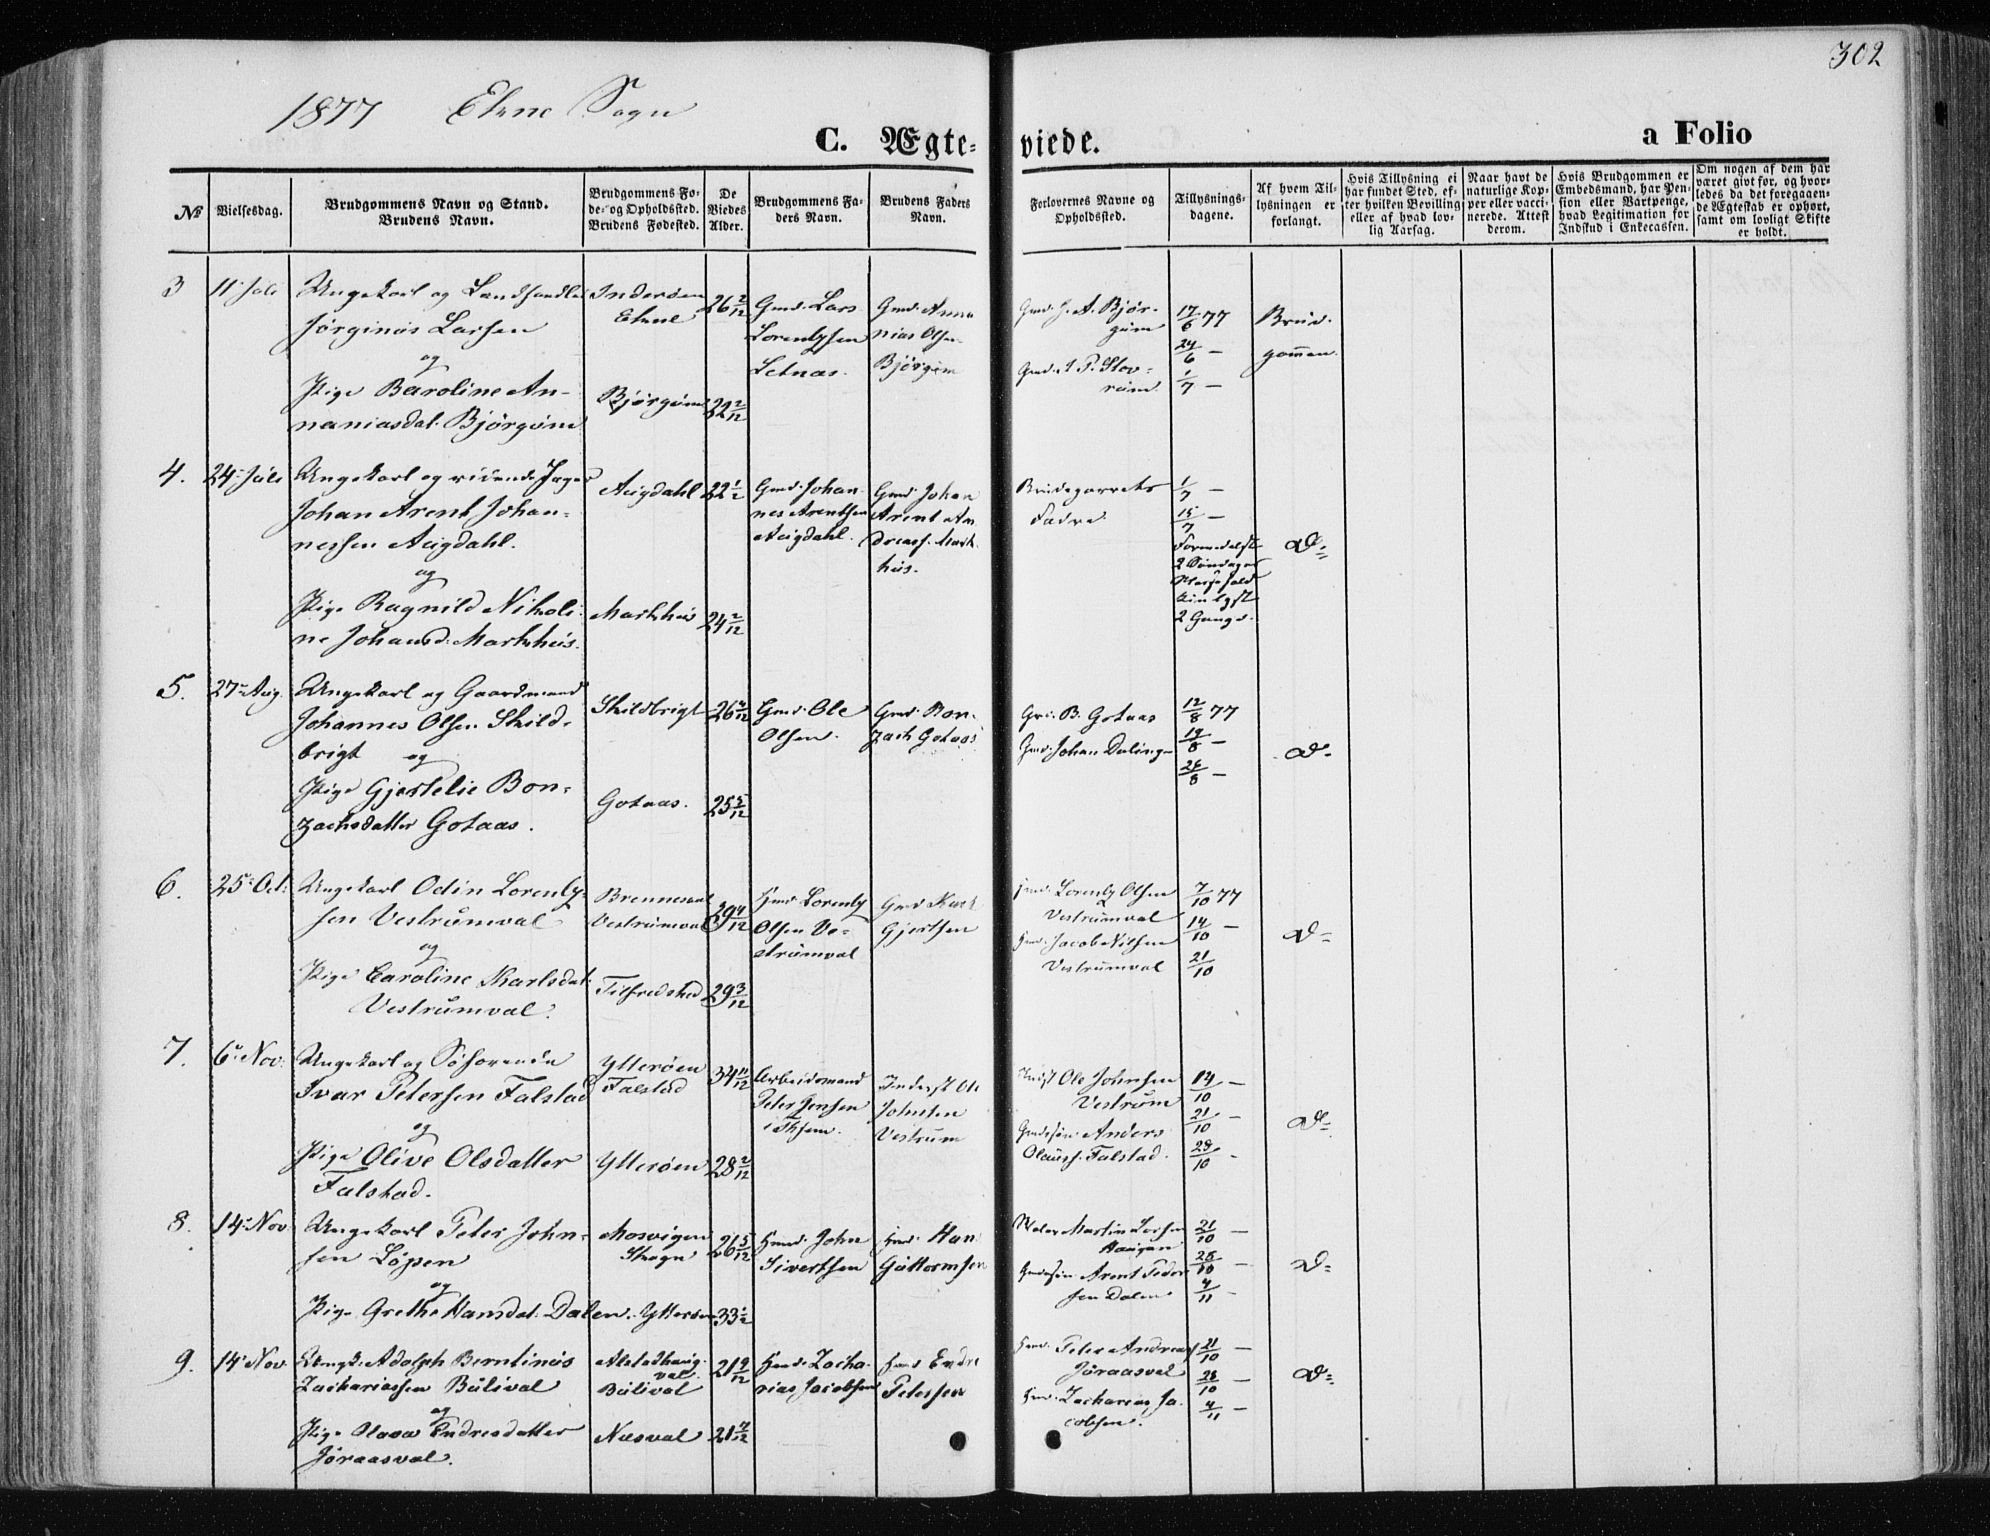 302
1877 Ekne Sogn
C. Ægte-viede.
a Folio
No
Vielsesdag.
Brudgommens Navn og Stand.
Brudens Navn.
Brudgommens Fø-
de- og Opholdssted.
Brudens Fødested.
De
Viedes
Alder.
Brudgommens Fa-
ders Navn.
Brudens Faders
Navn.
Forlovernes Navne og
Opholdssted.
Tillysnings-
dagene.
Af hvem Til-
lysningen er
forlangt.
Hvis Tillysning ei
har fundet Sted, ef-
ter hvilken Bevilling
eller af hvad lov-
lig Aarsag.
Naar havt de
naturlige Kop-
per eller vacci-
nerede. Attest
derom.
Hvis Brudgommen er
Embedsmand, har Pen-
sion eller Vartpenge,
hvad Legitimation for
Indskud i Enkecassen.
Om nogen af dem har
været givt før, og hvor-
ledes da det foregaaen-
de Ægteskab er ophørt,
samt om lovligt Skifte
er holdt.
3 11 Juli Ungekarl og Landhandler
Jørginus Larsen
og
Pige Karoline An-
naniasdat. Bjørgum
Inderøen
Ekne
Bjørgum
26 2/12
22 2/12
Gmd. Lars
Lorentzsen
Letnes.
Gmd. Anna
nias Olsen
Bjørgum
Gmd. J. A. Bjør-
gum
17/6 77
24/6 -
1/7 -
Brud-
gommen.
4. 24 Juli Ungekarl og ridende Jæger
Johan Arent Johan-
nessen Augdahl.
og
Pige Ragnild Nikoli-
ne Johansd. Markhus.
Augdahl
Markhus
22 1/2
24 2/12
Gmd. Johan-
nes Arentsen
Augdahl.
Gmd. Johan
Arent An
dreass. Mark-
hus.
Fadre
1/7 -
15/7 -
2 Søndage
2 Gange.
Do
5. 27 Aug. Ungekarl og Gaardmand
Johannes Olsen Skjld-
brigt og
Pige Gjertelie Bon-
zachsdatter Gotaas.
Skildbrigt
Gotaas.
25 5/12
Gmd. Ole
Olsen.
Gmd. Bon-
zach Gotaas
B. Gotaas
Gmd. Johan Daling
12/8 77
19/8 -
26/8 -
Do
6. 25 Oct. Ungekarl Odin Lorentz-
sen Vestrumval
og
Pige Caroline Karlsdat.
Vestrumval.
Vestrumval
29 3/12
Hmd. Lorentz
Olsen Ve-
strumval
Gmd Karl
Gjertsen
Hmd. Lorentz Olsen
Vestrumval
Hmd. Jacob Nilsen
Vestrumval
7/10 77
14/10 -
21/10
Do
7. 6 Nov. Ungekarl og Søfarende
Ivar Petersen Falstad
og
Pige Olive Olsdatter
Falstad.
Ytterøen
Falstad
Ytterøen
34 11/12
28 2/12
Arbeidsmand
Peter Jensen
Inderst Ole
Johnsen
Vestrum
Inderst Ole Johnsen
Vestrum
Gmdssøn Anders
Olauss. Falstad.
14/10 -
21/10 -
28/10 -
Do
8. 14 Nov Ungekarl Peter John-
sen Løpen
og
Pige Grethe Hansdat. Dalen.
Mosvigen
Skogn
Ytterøen
26 5/12
33 1/2
Hmd. John
Sivertsen
Hmd. Han
Guttormsen
Maler Martin Larsen
Haugan
Gmdssøn Arent Peder
sen Dalen
21/10 -
28/10 -
4/11 -
Do
9. 14 Nov. Ungk. Adolph Berntinus
Zachariassen Bulival
og
Pige Olava Endresdatter
Jøraasval.
Alstadhaug-
val
Bulival
Næsval
21 9/12
21 7/12
Hmd. Zacha-
rias Jacobsen
Hmd Endre
Petersen
Hmd. Peter Andreas
Jøraasval
Hmd. Zacharias Ja-
cobsen.
21/10 -
28/10 -
4/11 -
Do